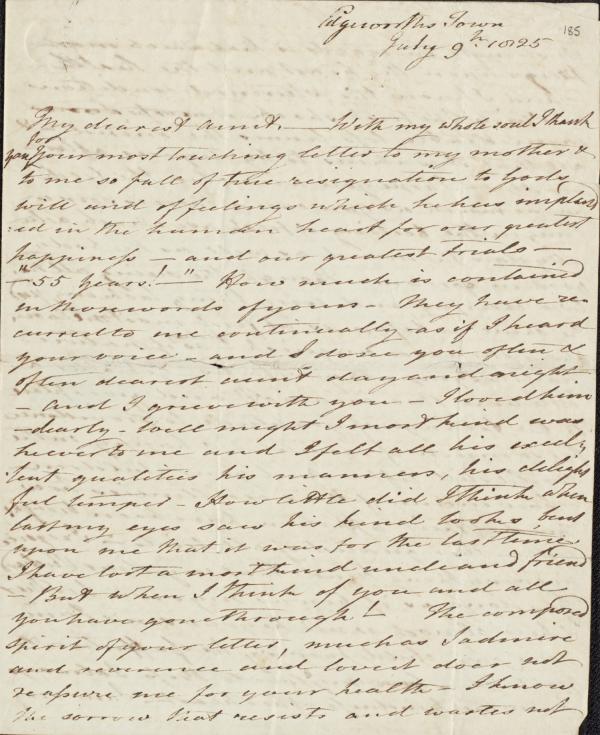 Edgeworths Town
185
July 9th 1825
My dearest Aunt, — With my whole soul I thank
for
you your most touching letter to my mother &
to me so full of true resignation to Gods
will and of feelings which he has implant
:ed in the human heart for our greatest
happiness — and our greatest trials —
— "55 years!—" How much is contained
in those words of yours — They have re-
curred to me continually as if I heard
your voice — and I do see you often &
often dearest aunt day and night
— and I grieve with you — I loved him
— dearly — Well might I most kind was
he ever to me and I felt all his excel,,
lent qualities his manners, his delight
ful temper — How little did I think when
last my eyes saw his kind looks bent
upon me that it was for the last time.
I have lost a most kind uncle and friend
— But when I think of you and all
you have gone through! The composed
spirit of your letter, much as I admire
and reverence and love it does not
reassure me for your health — I know
the sorrow that resists and wastes not